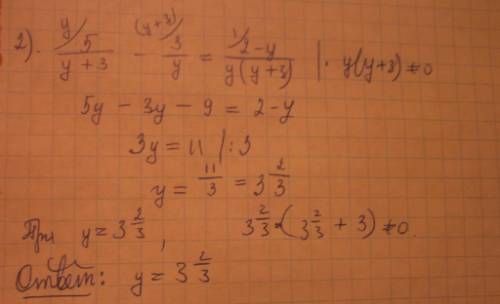 2). y/ 5/(y + 3) - (y+3)/ 3/y = 1/ (2-y)/(y(y+3)) | · y(y+3) ≠ 0
5y - 3y - 9 = 2 - y
3y = 11 | : 3
y = 11/3 = 3 2/3
При y = 3 2/3, 3 2/3 · (3 2/3 + 3) ≠ 0.
Ответ: y = 3 2/3